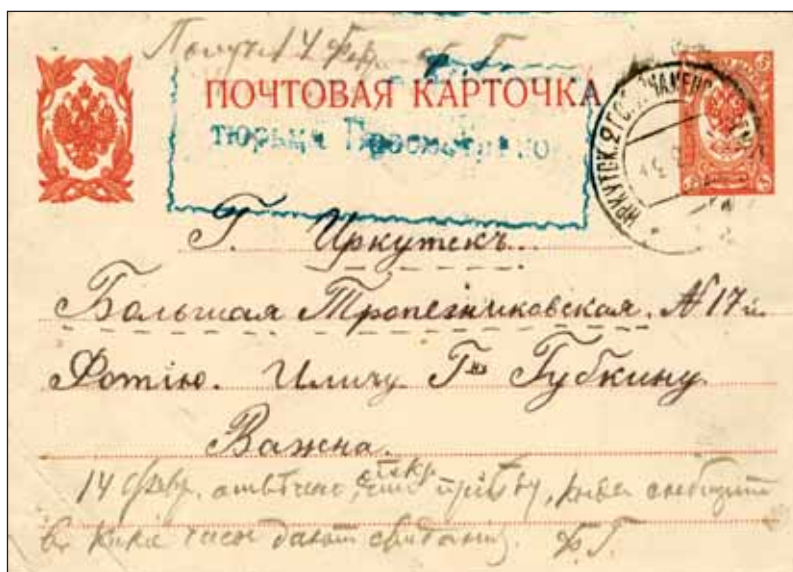 Получ 14 Фев. Ф. Г.
ПОЧТОВАЯ КАРТОЧКА
тюрьма Просмотрено
ИРКУТСК. 2 ГОР.
Г. Иркутскъ.
Большая Трапезниковская. № 17й.
Фотію. Иличу. Гну Губкину
Важна.
14 февр. отвѣчено, что
въ какіе часы дают свиданія. Ф. Г.